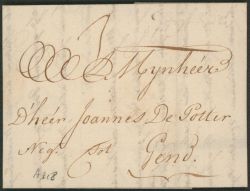 Mynheer
D'heer Joannes De Potter
Neg. Tot Gend.